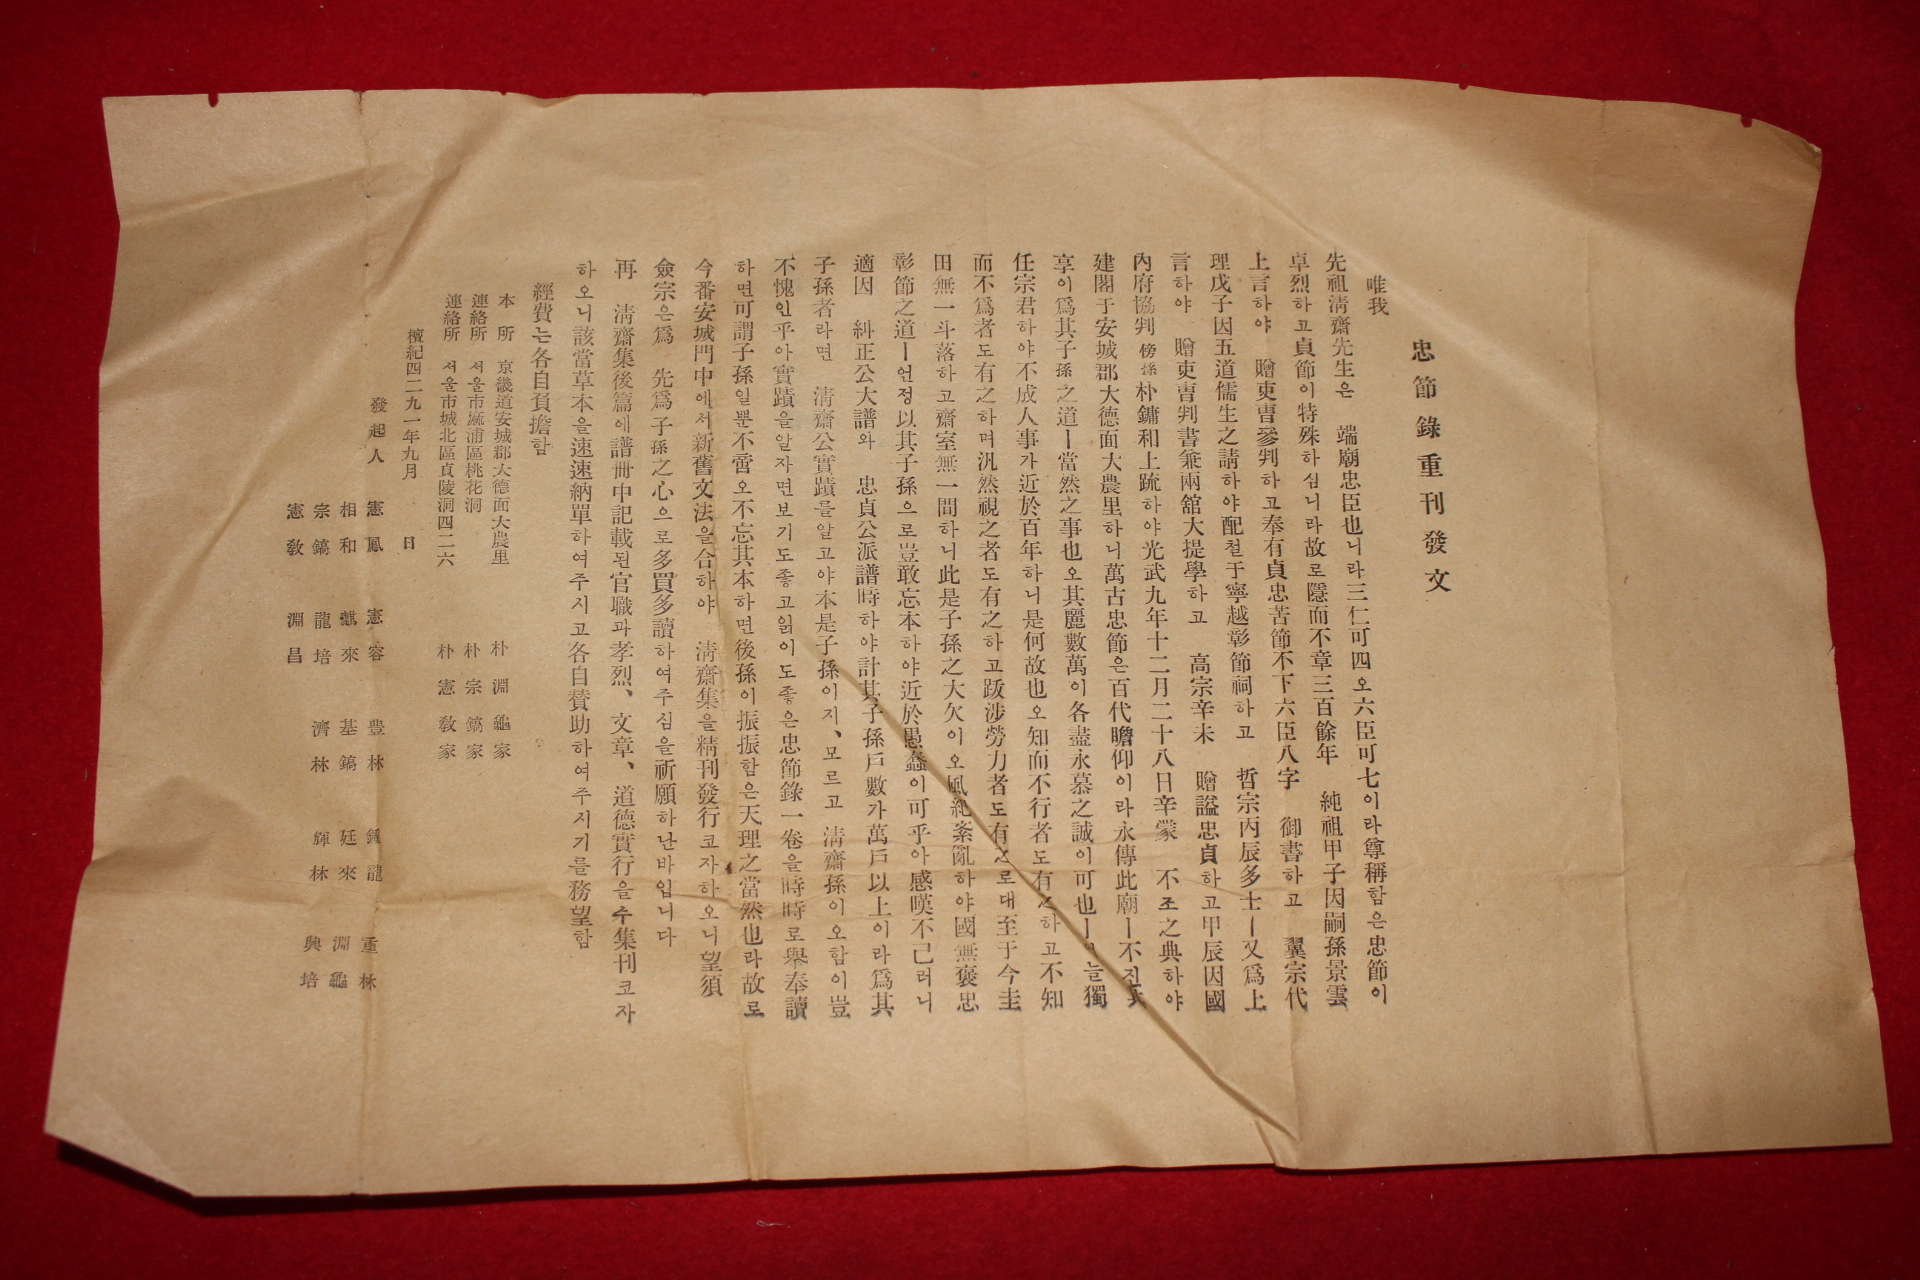 忠節錄重刊發文
唯我
先祖淸齋先生은 端廟忠臣也니라三仁可四오六臣可七이라尊稱함은忠節이
卓烈하고貞節이特殊하심니라故로隱而不章三百餘年 純祖甲子因嗣孫景雲
上言하야 贈吏曹參判하고奉有貞忠苦節不下六臣八字 御書하고 翼宗代
理戊子因五道儒生之請하야配철于寧越彰節祠하고 哲宗丙辰多士ㅣ又爲上
言하야 贈吏曹判書兼兩舘大提學하고 高宗辛未 贈謚忠貞하고甲辰因國
內府協判傍孫朴鏞和上疏하야光武九年十二月二十八日辛蒙 不조之典하야
建閣于安城郡大德面大農里하니萬古忠節은百代瞻仰이라永傳此廟ㅣ不진其
享이爲其子孫之道ㅣ當然之事也오其麗數萬이各盡永慕之誠이可也ㅣ 늘獨
任宗君하야不成人事가近於百年하니是何故也오知而不行者도有之하고不知
而不爲者도有之하며汎然視之者도有之하고跋涉勞力者도有之로대至于今圭
田無一斗落하고齋室無一間하니此是子孫之大欠이오風紀紊亂하야國無褒忠
彰節之道ㅣ언정以其子孫으로豈敢忘本하야近於愚蠢이可乎아感嘆不己러니
適因 糾正公大譜와 忠貞公派譜時하야計其子孫戶數가萬戶以上이라爲其
子孫者라면 淸齋公實蹟를알고야本是子孫이지、모르고 淸齋孫이오함이豈
不愧인乎아實蹟을알자면보기도좋고읽이도좋은忠節錄一卷을時時로擧奉讀
하면可謂子孫일뿐不啻오不忘其本하면後孫이振振함은天理之當然也라故로
今番安城門中에서新舊文法을合하야 淸齋集을精刊發行코자하오니望須
僉宗은爲 先爲子孫之心으로多買多讀하여주심을祈願하난바입니다
再 淸齋集後篇에譜冊中記載된官職과孝烈、文章、道德實行을수集刊코자
하오니該當草本을速速納單하여주시고各自賛助하여주시기를務望함
經費는各自負擔함
本 所 京畿道安城郡大德面大農里 朴淵龜家
連絡所 서울市麻浦區桃花洞 朴宗鎬家
連絡所 서울市城北區貞陵洞四二六 朴憲敎家
檀紀四二九一年九月 日
發起人 憲鳳 憲容 豊林 鍾龍 重林
相和 麒來 基鎬 廷來 淵龜
宗鎬 龍培 濟林 輝林 興培
憲敎 淵昌